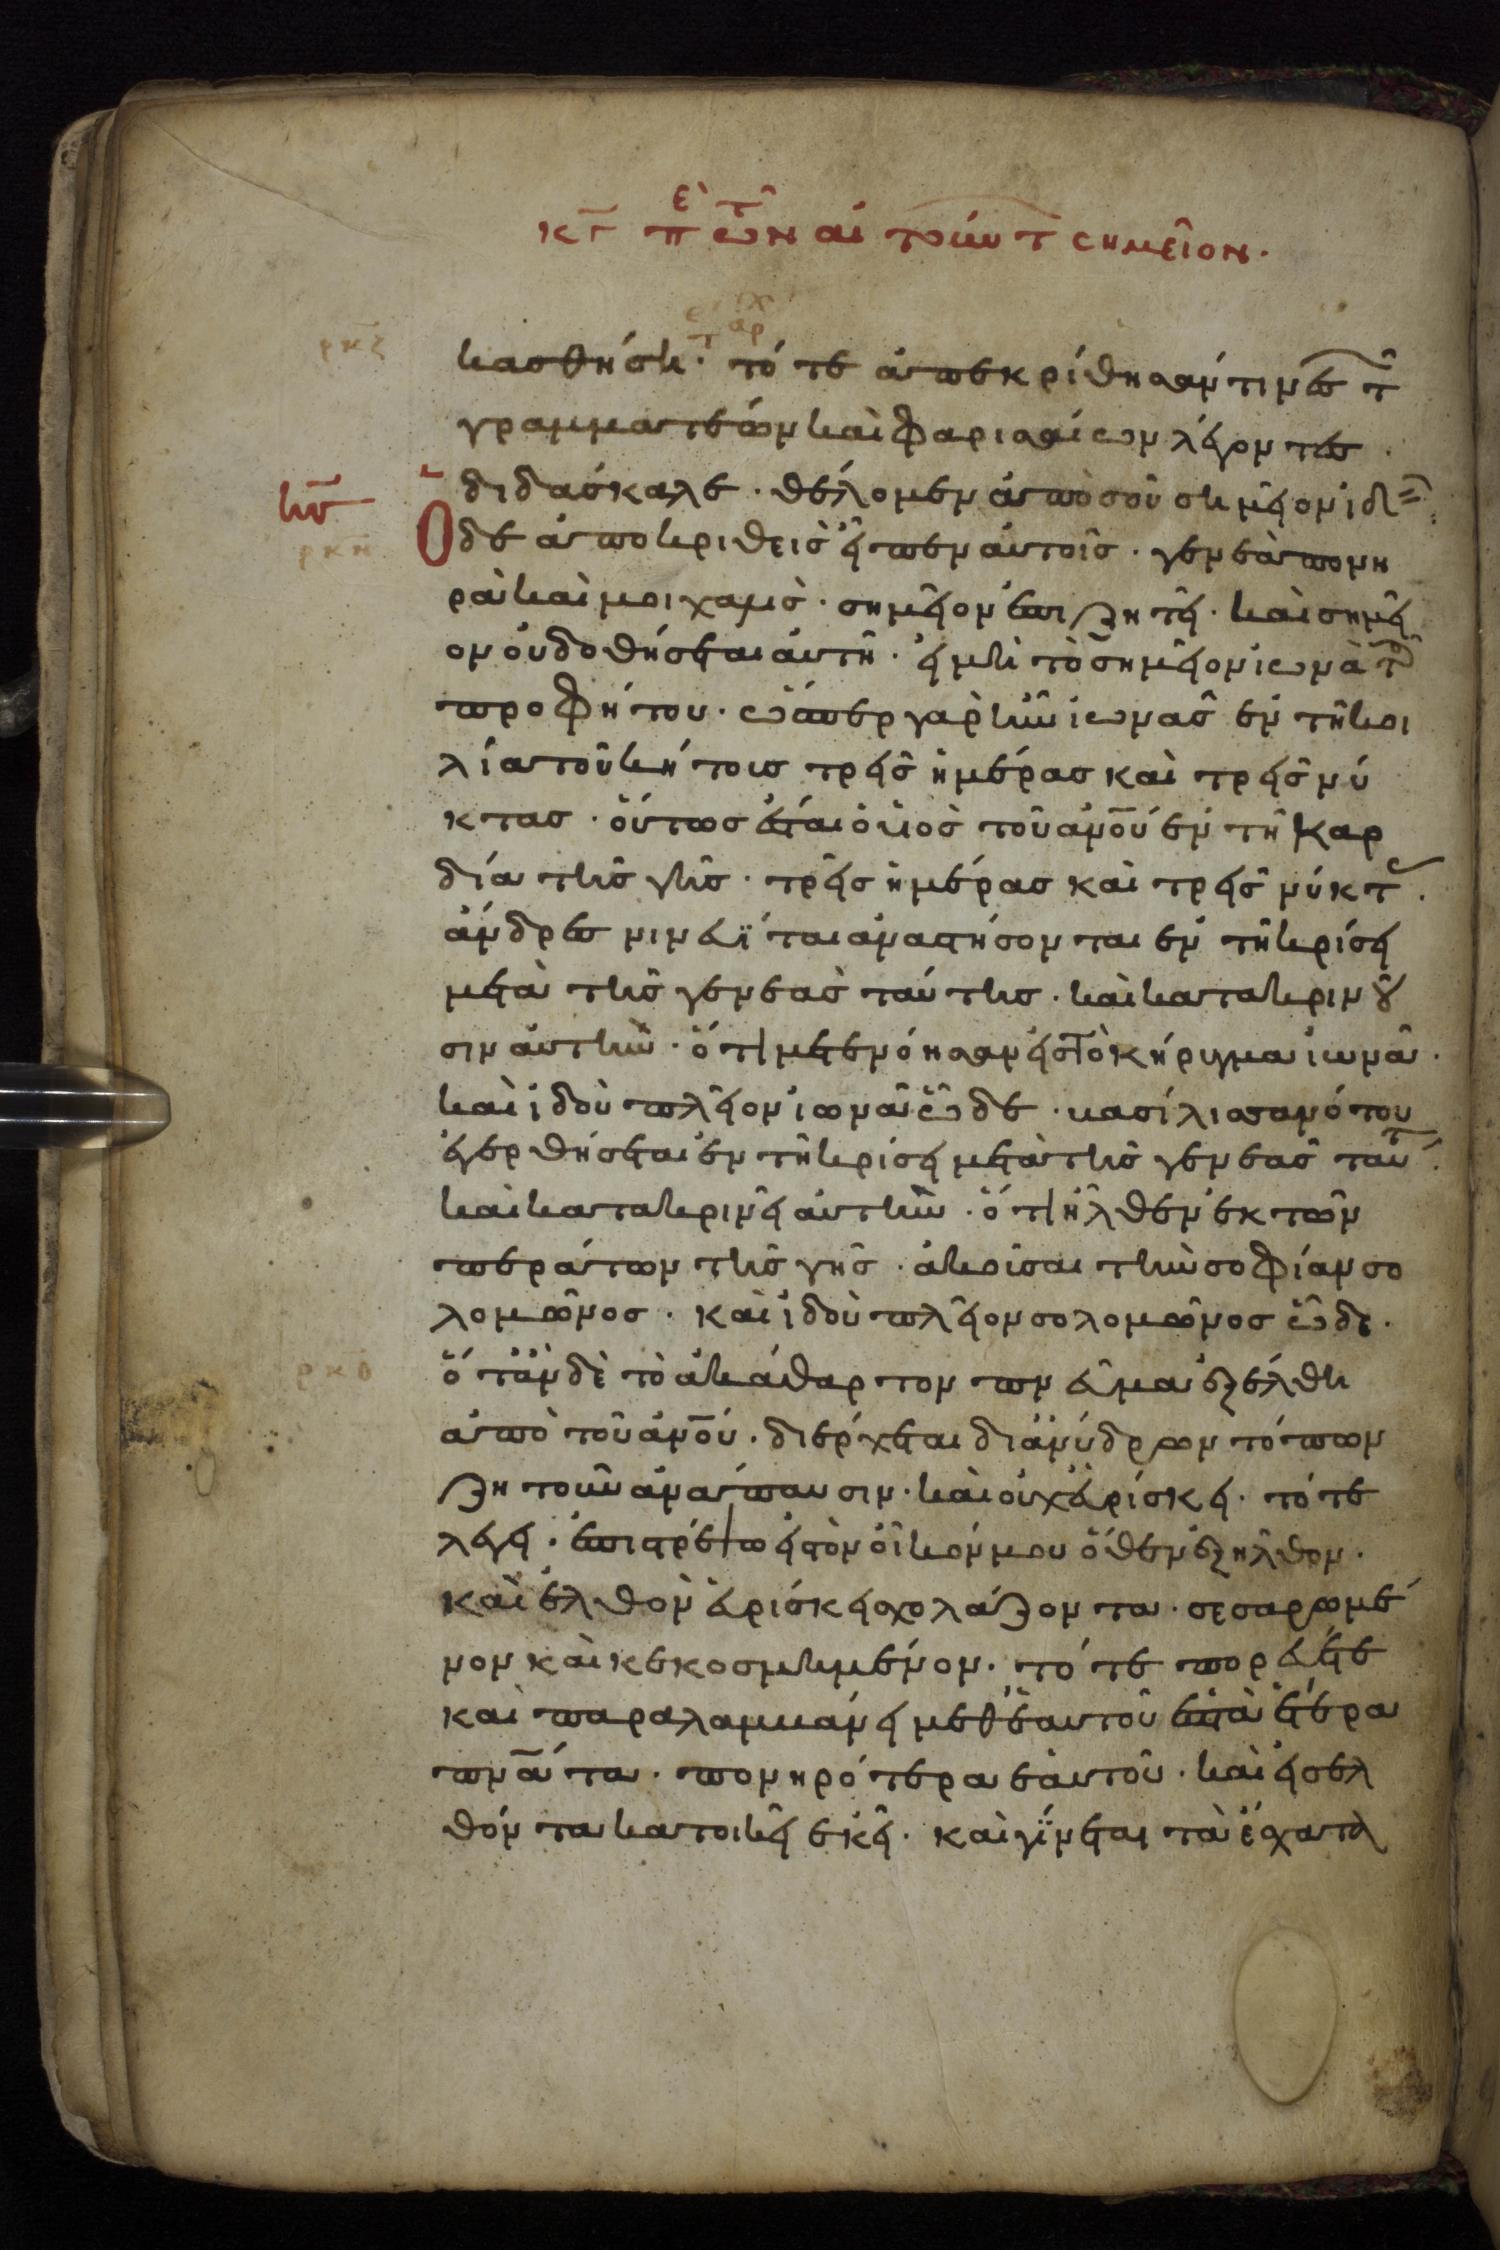 κγ περὶ τῶν αἰτούντ σημεῖον.
ρκζ
κασθήση. τότε ἀπεκρίθησάν τινες τῶν
γραμματέων καὶ φαρισαίων λέγοντες.
διδάσκαλε. θέλομεν ἀπὸ σοῦ σημεῖον ἰδεῖν
ιυ
ρκη
Ο δε ἀποκριθεις εἶπεν αυτοῖς. γενεὰ πονη
ρὰ καὶ μοιχαλις. σημεῖον ἐπιζητεῖ. καὶ σημεῖ
ον οὐ δοθήσεται αὐτῆ. εἰ μὴ τὸ σημεῖον ἰωνᾶ τοῦ
προφήτου. ὥσπερ γὰρ ἦν ἰωνᾶς ἐν τῆ κοι
λία τοῦ κήτους τρεῖς ἡμέρας καὶ τρεῖς νύ
κτας. οὕτως ἔσται ὁ υἱος τοῦ ἀνου ἐν τῆ καρ
δία τῆς γῆς. τρεῖς ἡμέρας καὶ τρεῖς νύκτ.
ἄνδρες νινευῖται ἀναστήσονται ἐν τῆ κρίσει
μετὰ τῆς γενεᾶς ταύτης. καὶ κατακρινοῦ
σιν αὐτὴν. ὅτι μετενόησαν εἰς τὸ κήρυγμα ἰωνᾶ.
καὶ ἰδοὺ πλεῖον ἰωνᾶ ὧδε. βασίλισσα νότου
ἐγερθήσεται ἐν τῆ κρίσει μετὰ τῆς γενεᾶς ταυτ.
καὶ κατακρινεῖ αὐτὴν. ὅτι ἦλθεν ἐκ τῶν
περάτων τῆς γῆς. ἀκοῦσαι τὴν σοφίαν σο
λομῶνος. καὶ ἰδοὺ πλεῖον σολομῶνος ὧδε.
ρκθ
ὅταν δὲ τὸ ἀκάθαρτον πνεῦμα ἐξέλθη
ἀπὸ τοῦ ἀνου. διέρχεται δι ἀνύδρων τόπων
ζητοῦν ἀνάπαυσιν. καὶ οὐχ εὑρίσκει. τότε
λέγει. ἐπιστρέψω εἰς τὸν οἶκόν μου ὅθεν ἐξῆλθον.
καὶ ἐλθὸν εὑρίσκει σχολάζοντα. σεσαρωμέ
νον καὶ κεκοσμημένον. τότε πορεύεται
καὶ παραλαμβάνει μεθ ἑαυτοῦ ἑπτὰ ἕτερα
πνατα. πονηρότερα ἑαυτοῦ. καὶ εἰσελ
θόντα κατοικεῖ ἐκεῖ. καὶ γίνεται τὰ ἔσχατα